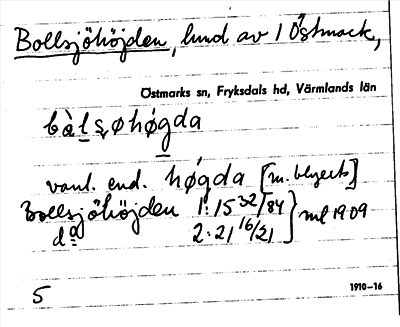 Bollsjöhöjden, lund av 1 Östmark,
Östmarks sn, Fryksdals hd, Värmlands län
bàlsøhøgda
vanl. end. høgda [m. blyerts]
Bollsjöhöjden 1:15 32/84 } ml 1909
do 2:21 16/21
5
1910–16